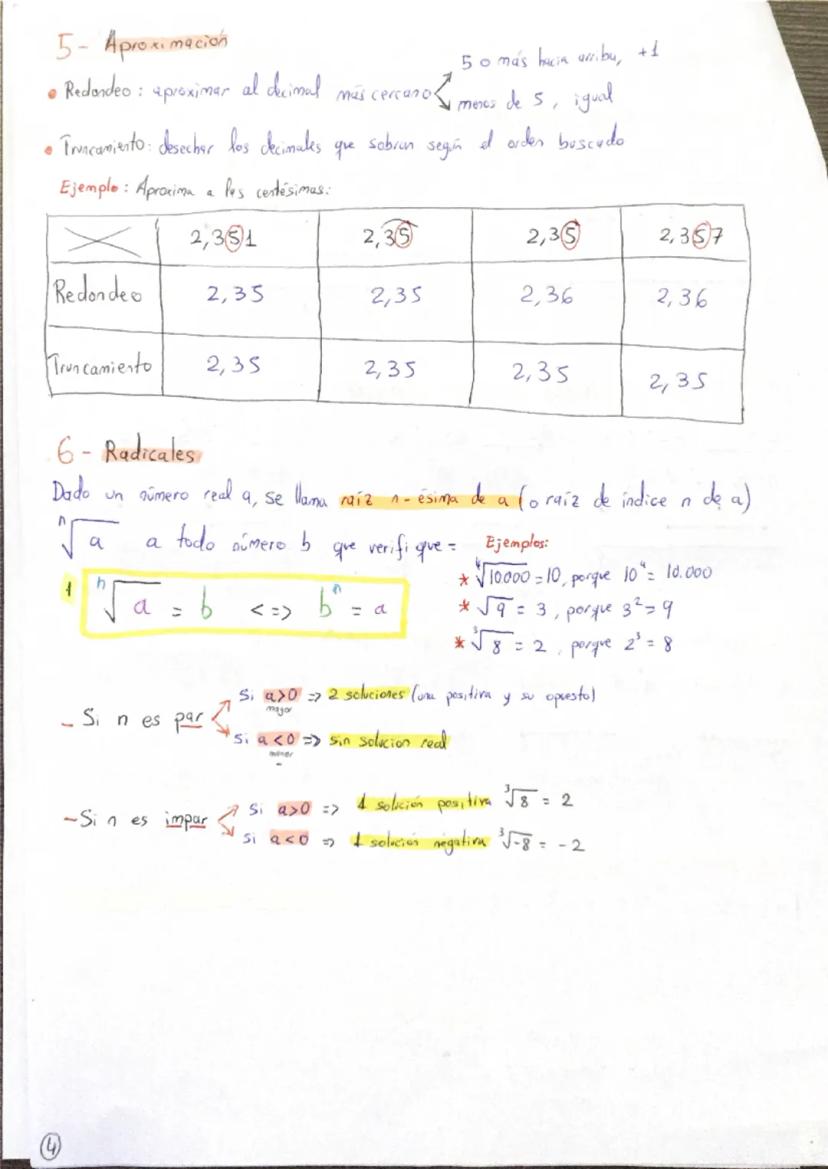 5- Aproximación
5 o más hacia arriba, +1
• Redondeo: aproximar al decimal más cercano
menos de 5, igual
• Truncamiento: desechar los decimales que sobran según el orden buscado
Ejemplo: Aproxima a las centésimas:
2,351 2,35 2,35 2,357
Redondeo 2,35 2,35 2,36 2,36
Truncamiento 2,35 2,35 2,35 2,35
6- Radicales
Dado un número real a, se llama raíz n-ésima de a (o raíz de índice n de a)
ⁿ√a a todo número b que verifique= Ejemplos:
* ⁴√10.000 = 10, porque 10⁴ = 10.000
1 ⁿ√a = b <=> bⁿ = a
* √9 = 3, porque 3² = 9
* ³√8 = 2, porque 2³ = 8
Si a>0 => 2 soluciones (una positiva y su opuesto)
mayor
- Si n es par
Si a<0 => sin solucion real
menor
Si a>0 => 1 solución positiva ³√8 = 2
- Si n es impar
Si a<0 => 1 solución negativa ³√-8 = -2
4